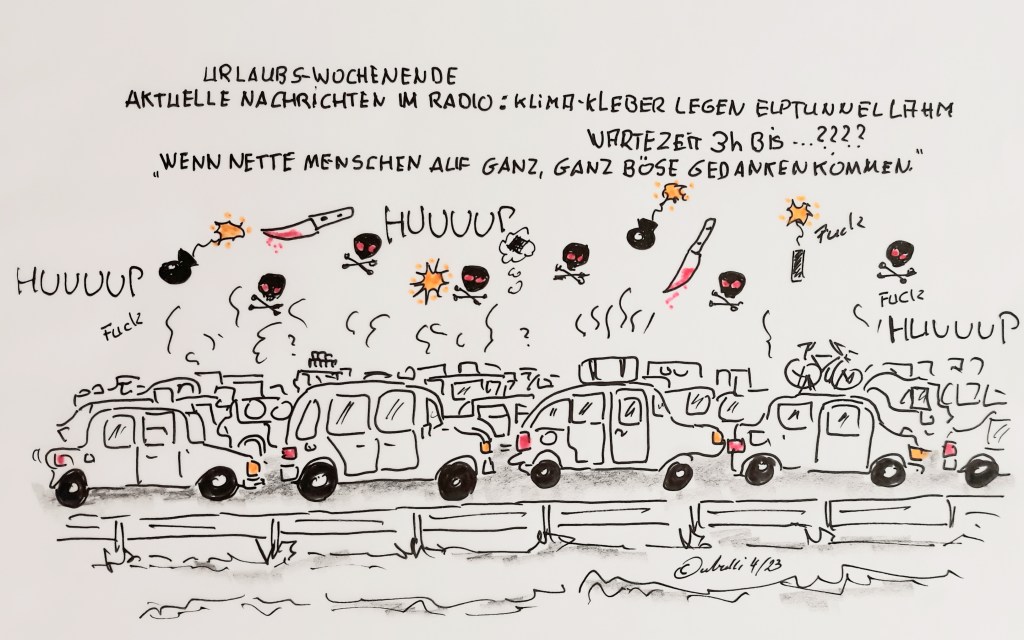 URLAUBS-WOCHENENDE
AKTUELLE NACHRICHTEN IM RADIO: KLIMA-KLEBER LEGEN ELPTUNNEL LAHM
WARTEZEIT 3h BIS ...????
„WENN NETTE MENSCHEN AUF GANZ, GANZ BÖSE GEDANKEN KOMMEN."
HUUUUP
HUUUUP
Fuck
Fuck
Fuck
HUUUUP
?
?
4/23